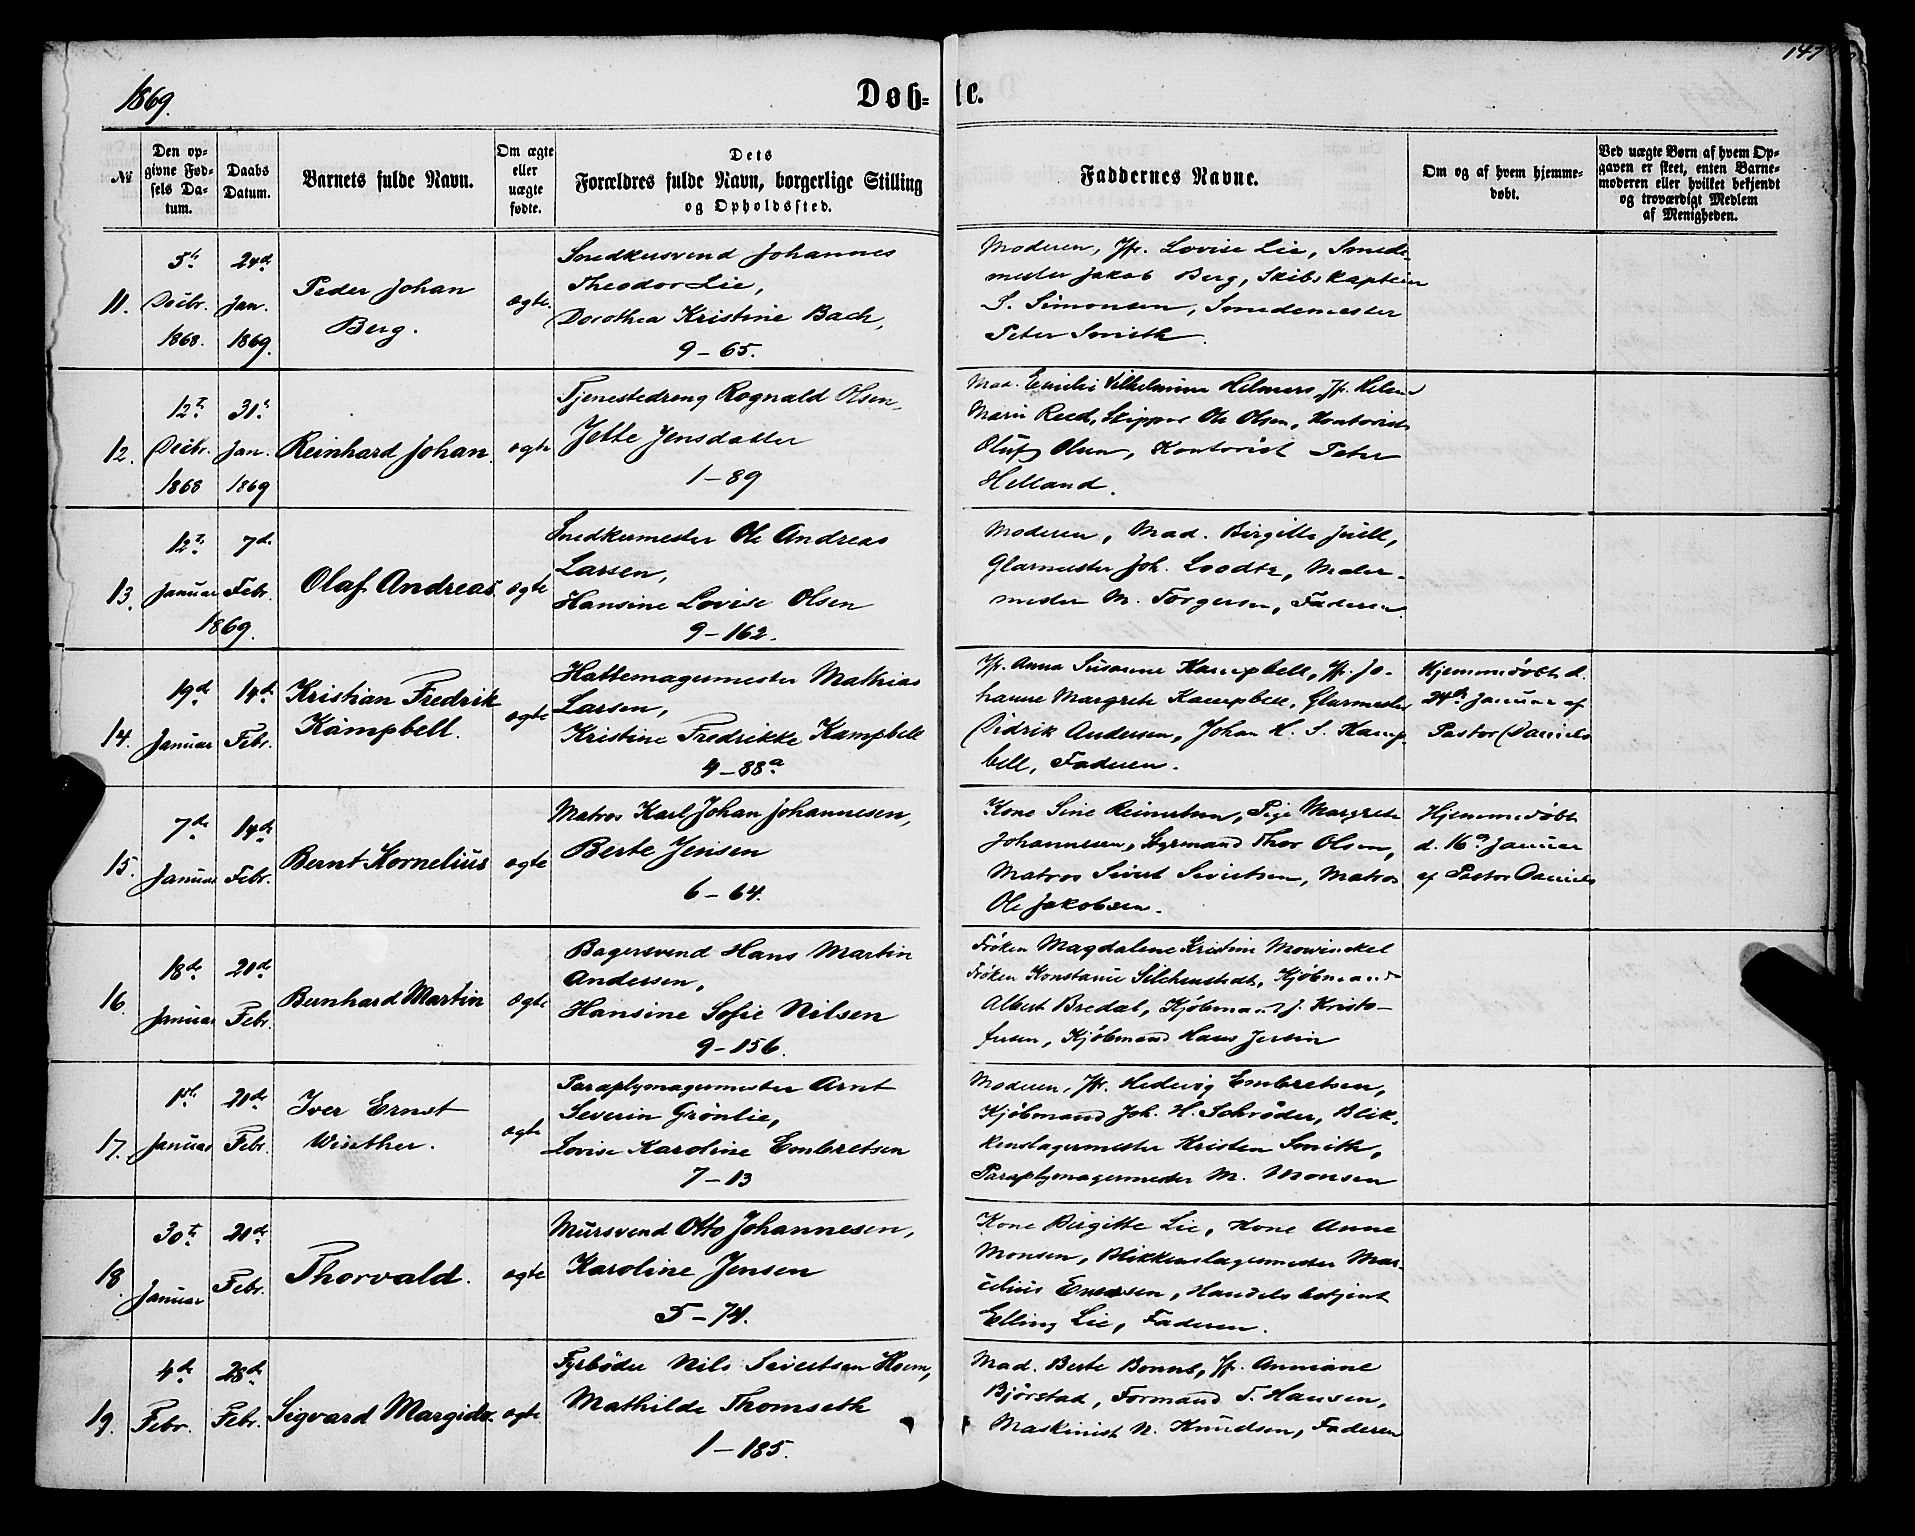 1869.
Døb-
te.
147
№
Den op-
givne Fød-
sels Da-
tum.
Daabs
Datum.
Barnets fulde Navn.
Om ægte
eller
uægte
fødte.
Dets
Forældres fulde Navn, borgerlige Stilling
og Opholdssted.
Faddernes Navne.
Om og af hvem hjemme-
døbt.
Ved uægte Børn af hvem Op-
gaven er skeet, enten Barne-
moderen eller hvilket bekjendt
og troværdigt Medlem
af Menigheden.
11.
5te
Decbr.
1868.
24de
Jan.
1869.
Peder Johan
Berg.
ægte
Snedkersvend Johannes
Theodor Lie,
Dorothea Kristine Bach,
9 - 65.
Moderen, Jfr. Lovise Lie, Smede-
mester Jakob Berg, Skibskaptein
S. Simonsen, Smedemester
Peter Smith.
12.
12te
Decbr.
1868
31te
Jan.
1869
Reinhard Johan
ægte
Tjenestedreng Rognald Olsen,
Jette Jensdatter
1 - 89
Mad. Emilie Vilhelmine Helmers, Jfr. Helene
Marie Reed, Skipper Ole Olsen, Kontorist
Oluf Olsen, Kontorist Peter
Helland.
13.
12te
Januar
7de
Febr.
1869.
Olaf Andreas
ægte
Snedkermester Ole Andreas
Larsen,
Hansine Lovise Olsen
9 - 162.
Moderen, Mad. Birgitte Juell,
Glarmester Joh. Loodtz, Maler-
mester M. Torgersen, Faderen
14.
19de
Januar
14de
Febr.
Kristian Fredrik
Kampbell.
ægte
Hattemagermester Mathias
Larsen,
Kristine Fredrikke Kampbell
4 - 88a
Jfr. Anna Susanne Kampbell, Jfr. Jo-
hanne Margrete Kampbell, Glarmester
Didrik Andersen, Johan H. S. Kamp-
bell, Faderen.
Hjemmedøbt d.
24de Januar af
Pastor Daniels
15.
7de
Januar
14de
Febr.
Bernt Kornelius
ægte
Matros Karl Johan Johannesen,
Berte Jensen
6 - 64.
Kone Sine Reimertsen, Pige Margrete
Johannesen, Styrmand Thor Olsen,
Matros Sivert Sivertsen, Matros
Ole Jakobsen.
Hjemmedøbt
d. 16de Januar
af Pastor Daniels
16.
18de
Januar
20de
Febr.
Bernhard Martin
ægte
Bagersvend Hans Martin
Andersen,
Hansine Sofie Nilsen
9 - 156.
Frøken Magdalene Kristine Mowinckel
Frøken Konstance Selchenstedt, Kjøbmand
Albert Bredal, Kjøbmand J. Kristo-
fersen, Kjøbmand Hans Jersin
17.
1ste
Januar
20de
Febr.
Iver Ernst
Winther.
ægte
Paraplymagermester Arnt
Severin Grønlie,
Lovise Karoline Embretsen
7 - 13
Moderen, Jfr. Hedevig Embretsen,
Kjøbmand Joh. H. Schrøder, Blik-
kenslagermester Kristen Smith,
Paraplymagermester M. Monsen
18.
30te
Januar
20de
Febr.
Thorvald.
ægte
Mursvend Otto Johannesen,
Karoline Jensen
5 - 74.
Kone Birgitte Lie, Kone Anne
Monsen, Blikkenslagermester Mar-
celius Enersen, Handelsbetjent
Elling Lie, Faderen.
19.
4de
Febr.
28de
Febr.
Sigvard Margido.
ægte
Fyrbøder Nils Sivertsen Hem,
Mathilde Thomseth
1 - 185.
Mad. Berte Bonne, Jfr. Anniane
Bjørstad, Formand T. Hansen,
Maskinist N. Knudsen, Faderen